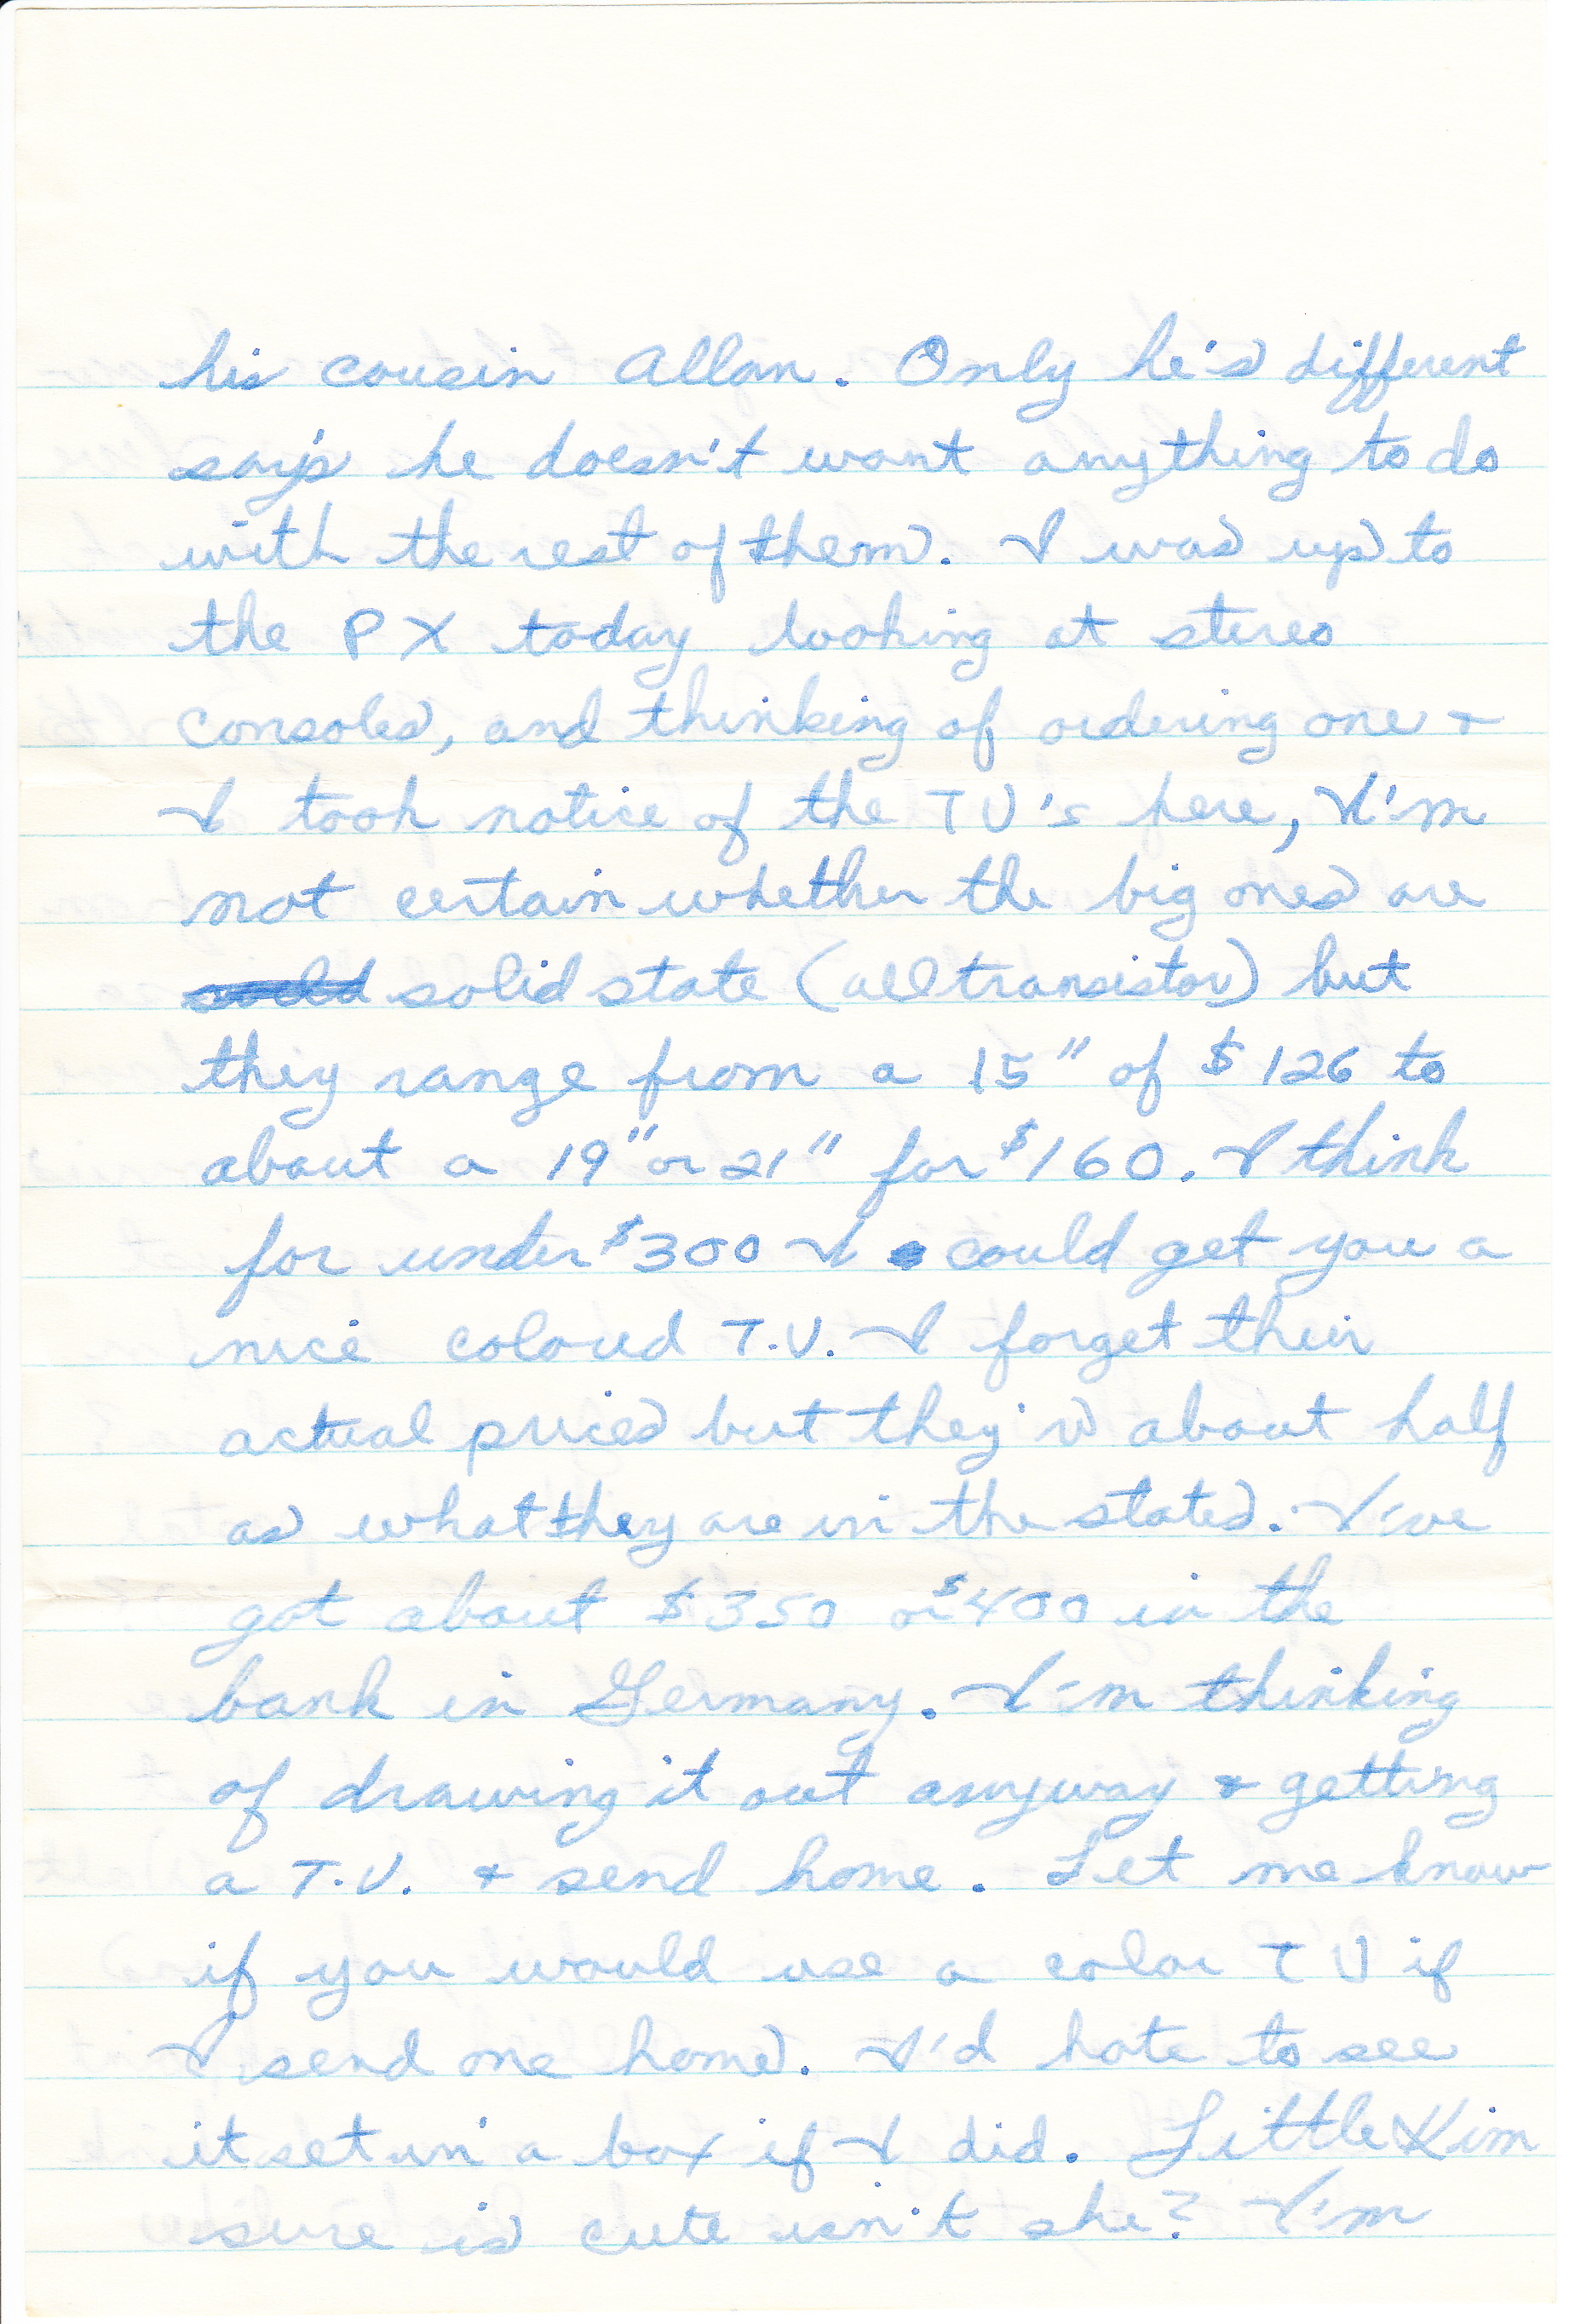 his cousin Allan. Only he's different
say's he doesn't want anything to do
with the rest of them. I was up to
the PX today looking at stereo
consoles, and thinking of ordering one +
I took notice of the TV's here, I'm
not certain whether the big ones are
solid state (all transistor) but
they range from a 15" of $126 to
about a 19" or 21" for $160. I think
for under $300 I could get you a
nice colored T.V. I forget their
actual prices but they'r about half
as what they are in the states. I've
got about $350 or $400 in the
bank in Germany. I'm thinking
of drawing it out anyway & getting
a T.V. & send home. Let me know
if you would use a color TV if
I send one home. I'd hate to see
it set in a box if I did. Little Kim
sure is cute isn't she? I'm